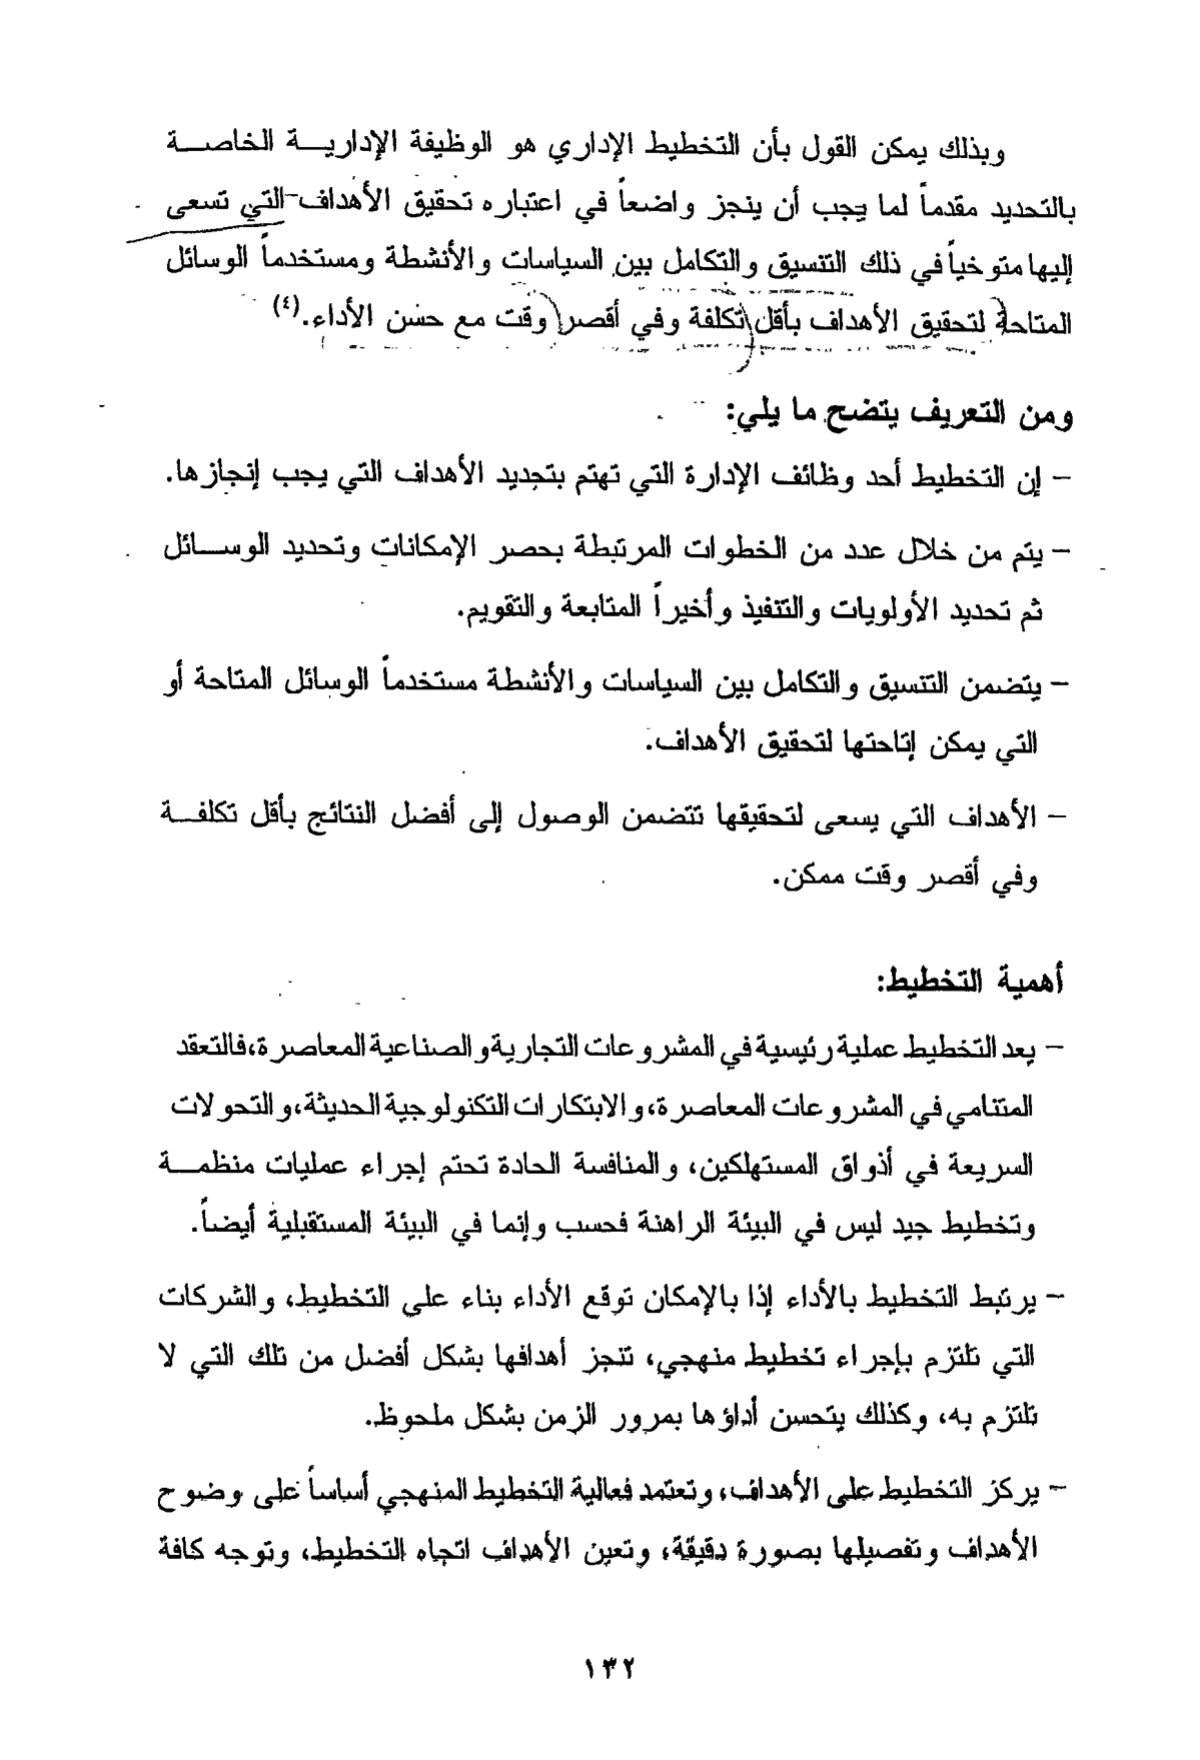 وبذلك يمكن القول بأن التخطيط الإداري هو الوظيفة الإدارية الخاصة
بالتحديد مقدماً لما يجب أن ينجز واضعاً في اعتباره تحقيق الأهداف التي تسعى
إليها متوخياً في ذلك التنسيق والتكامل بين السياسات والأنشطة ومستخدماً الوسائل
المتاحة لتحقيق الأهداف بأقل تكلفة وفي أقصر وقت مع حسن الأداء.(٤)
ومن التعريف يتضح ما يلي:
- إن التخطيط أحد وظائف الإدارة التي تهتم بتحديد الأهداف التي يجب إنجازها.
- يتم من خلال عدد من الخطوات المرتبطة بحصر الإمكانات وتحديد الوسائل
ثم تحديد الأولويات والتنفيذ وأخيراً المتابعة والتقويم.
- يتضمن التنسيق والتكامل بين السياسات والأنشطة مستخدماً الوسائل المتاحة أو
التي يمكن إتاحتها لتحقيق الأهداف.
- الأهداف التي يسعى لتحقيقها تتضمن الوصول إلى أفضل النتائج بأقل تكلفة
وفي أقصر وقت ممكن.
أهمية التخطيط:
- يعد التخطيط عملية رئيسية في المشروعات التجارية والصناعية المعاصرة، فالتعقد
المتنامي في المشروعات المعاصرة، والابتكارات التكنولوجية الحديثة، والتحولات
السريعة في أذواق المستهلكين، والمنافسة الحادة تحتم إجراء عمليات منظمة
وتخطيط جيد ليس في البيئة الراهنة فحسب وإنما في البيئة المستقبلية أيضاً.
- يرتبط التخطيط بالأداء إذا بالإمكان توقع الأداء بناء على التخطيط، والشركات
التي تلتزم بإجراء تخطيط منهجي، تنجز أهدافها بشكل أفضل من تلك التي لا
تلتزم به، وكذلك يتحسن أداؤها بمرور الزمن بشكل ملحوظ.
- يركز التخطيط على الأهداف، وتعتمد فعالية التخطيط المنهجي أساساً على وضوح
الأهداف وتفصيلها بصورة دقيقة، وتعين الأهداف اتجاه التخطيط، وتوجه كافة
١٣٢